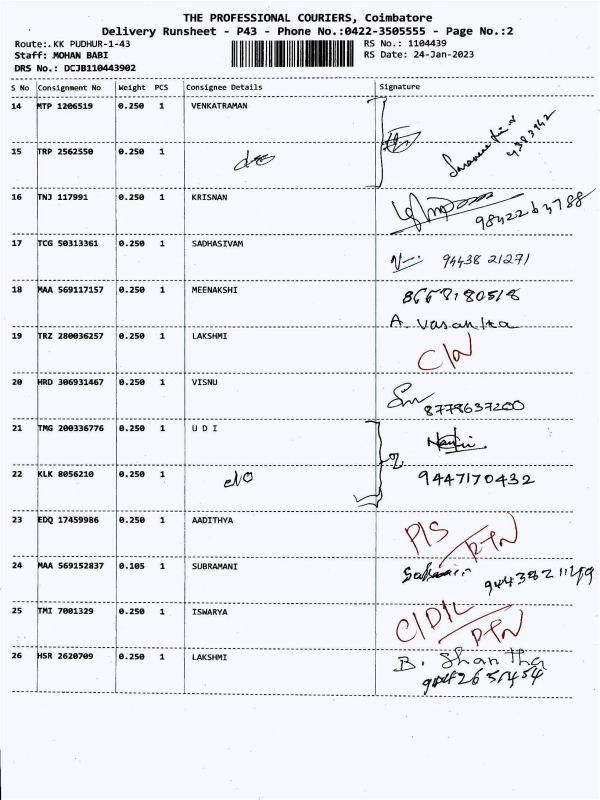 THE PROFESSIONAL COURIERS, Coimbatore
Delivery Runsheet - P43 - Phone No.:0422-3505555 - Page No.:2
Route:.KK PUDHUR-1-43
RS No.: 1104439
Staff: MOHAN BABI
RS Date: 24-Jan-2023
DRS No.: DCJB110443902
S No Consignment No Weight PCS Consignee Details Signature
14 MTP 1206519 0.250 1 VENKATRAMAN
15 TRP 2562550 0.250 1
16 TNJ 117991 0.250 1 KRISNAN
9842263788
17 TCG 50313361 0.250 1 SADHASIVAM
94438 21271
18 MAA 569117157 0.250 1 MEENAKSHI
8668180518
A. Vasantha
19 TRZ 280036257 0.250 1 LAKSHMI
20 HRD 306931467 0.250 1 VISNU
8778637200
21 TMG 200336776 0.250 1 U D I
22 KLK 8056210 0.250 1
9447170432
23 EDQ 17459986 0.250 1 AADITHYA
P/S
RTN
24 MAA 569152837 0.105 1 SUBRAMANI
25 TMI 7001329 0.250 1 ISWARYA
C/D/L
RTN
26 HSR 2620709 0.250 1 LAKSHMI
B. Shantha